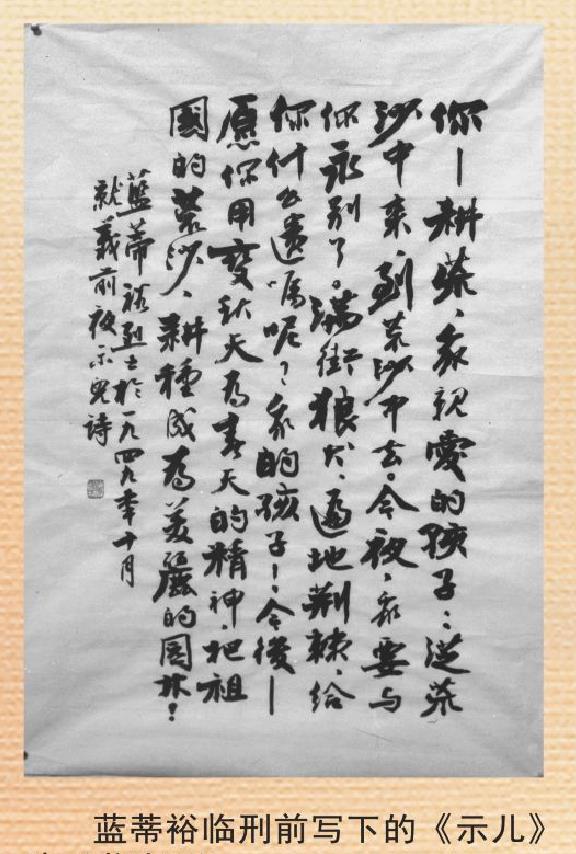 你—耕荒、我親愛的孩子：從荒
沙中來、到荒沙中去。今夜、我要与
你永别了。满街狼犬、遍地荆棘、给
你什么遗嘱呢？我的孩子！今後—
愿你用變秋天為春天的精神、把祖
國的荒沙、耕種成為美麗的園林！
藍蒂裕烈士於一九四九年十月
就義前夜示兒詩
蓝蒂裕临刑前写下的《示儿》